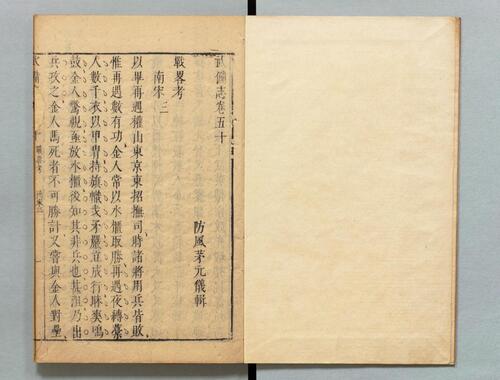 武備志卷五十
防風茅元儀輯
戰畧考
南宋三
以畢再遇權山東京東招撫司時諸將用兵皆敗
惟再遇數有功金人常以水櫃取勝再遇夜縛藁
人數千衣以甲冑持旗幟戈矛儼立成行昧爽鳴
鼓金人驚視亟放水櫃後知其非兵也甚沮乃出
兵攻之金人馬死者不可勝計又嘗與金人對壘